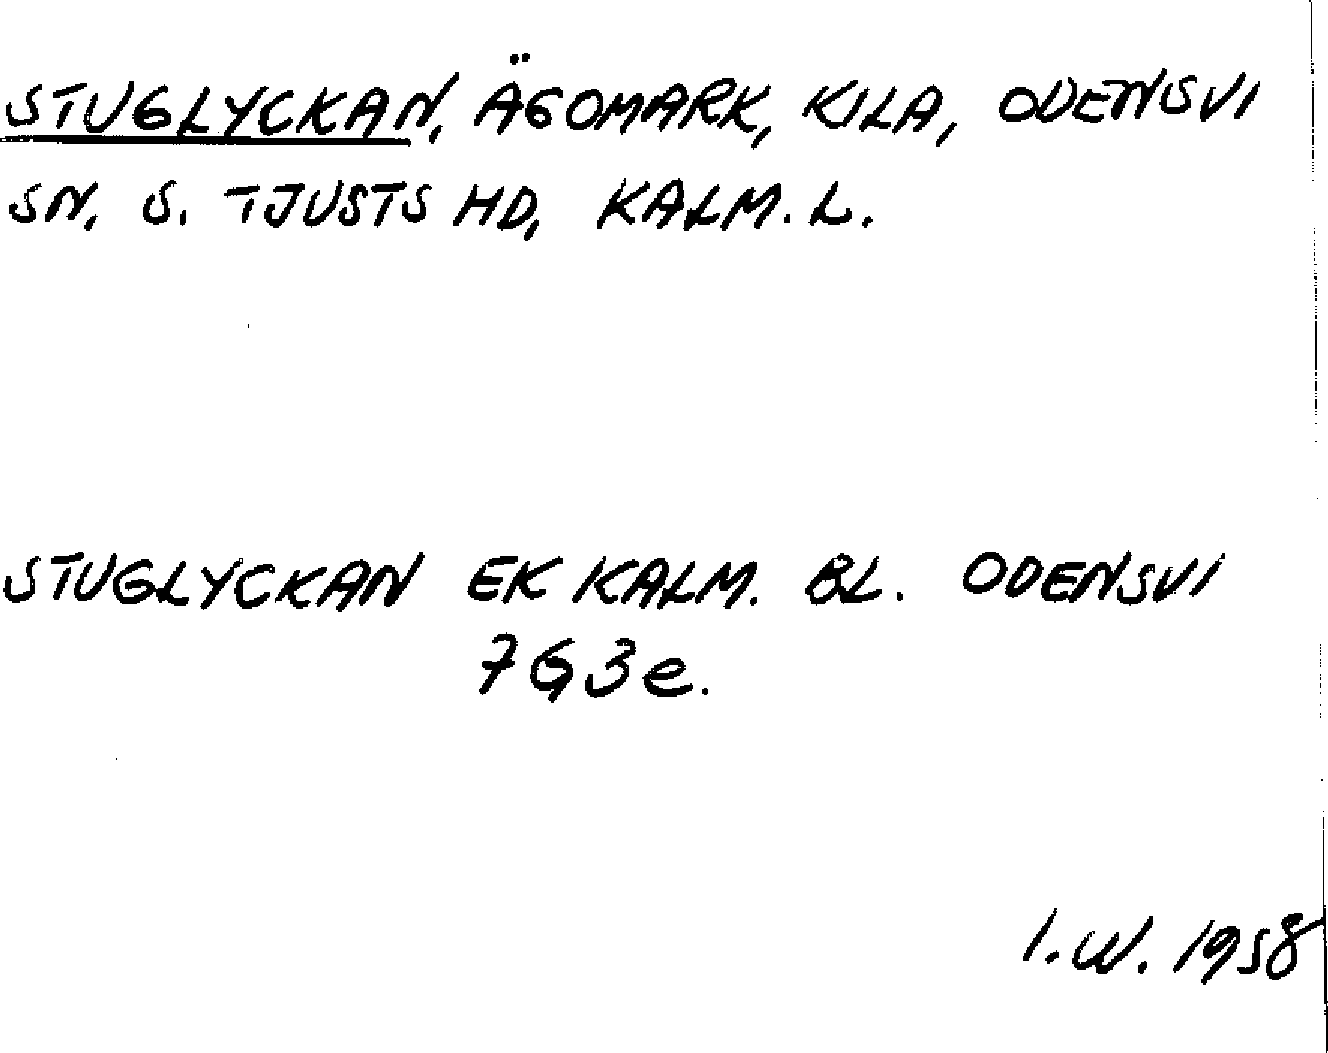 STUGLYCKAN, ÄGOMARK, KILA, ODENSVI
SN, S. TJUSTS HD, KALM. L.
STUGLYCKAN EK KALM. BL. ODENSVI
7G3e.
I.W. 1958